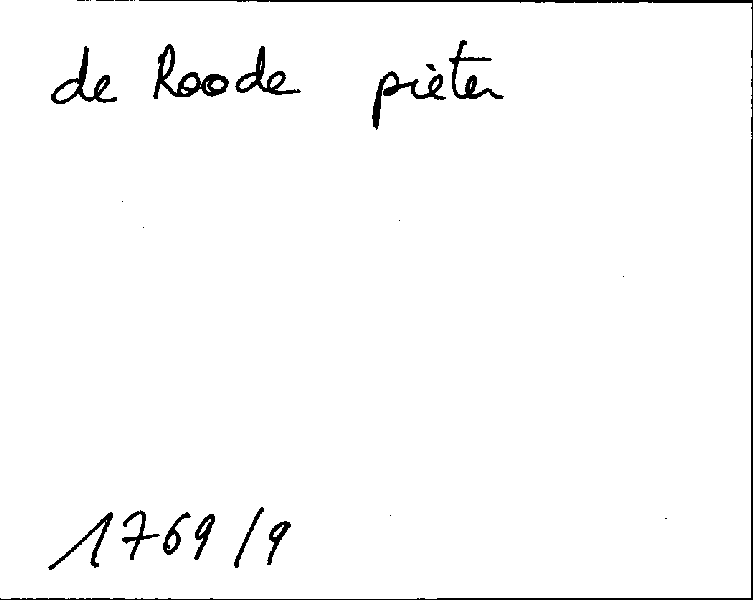 de Roode pieter
1769/9